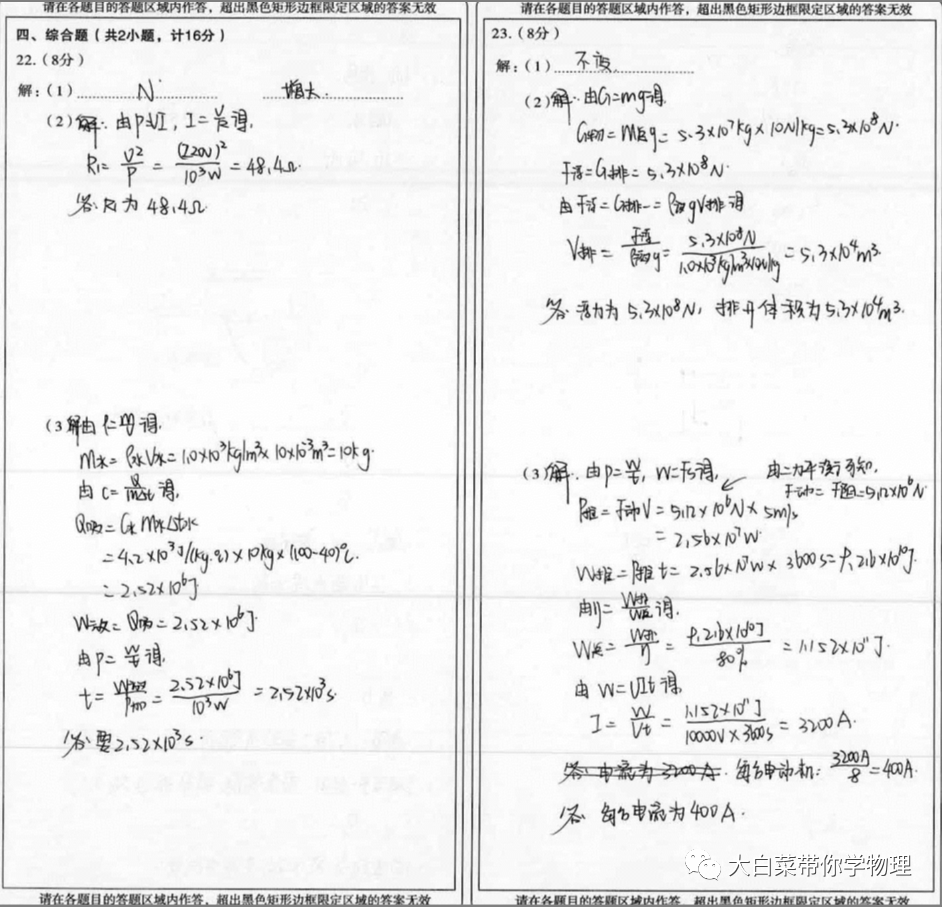 请在各题目的答题区域内作答，超出黑色矩形边框限定区域的答案无效
四、综合题（共2小题，计16分）
22.（8分）
解：（1） N 增大
(2)解：由P=UI，I=U/R得，
R₁=U²/P=(220V)²/10³W=48.4Ω
答：R₁为48.4Ω
(3)解由ρ=m/V得，
m水=ρ水V水=1.0×10³kg/m³×10×10⁻³m³=10kg
由C=Q/mΔt得，
Q吸=C水m水Δt水
=4.2×10³J/(kg·℃)×10kg×(100-40)℃
=2.52×10⁶J
W=Q吸=2.52×10⁶J
由P=W/t得，
t=W/P=2.52×10⁶J/10³W=2.52×10³s
答：要2.52×10³s
请在各题目的答题区域内作答，超出黑色矩形边框限定区域的答案无效
请在各题目的答题区域内作答，超出黑色矩形边框限定区域的答案无效
23.（8分）
解：（1） 不变
(2)解：由G=mg得
G=mg=5.3×10⁷kg×10N/kg=5.3×10⁸N
F浮=G排=5.3×10⁸N
由F浮=G排=ρgV排得
V排=F浮/ρg=5.3×10⁸N/1.0×10³kg/m³×10N/kg=5.3×10⁴m³
答：浮力为5.3×10⁸N，排开体积为5.3×10⁴m³
(3)解：由P=W/t，W=Fs得，
由二力平衡可知，
F动=F阻=5.12×10⁶N
P推=F动V=5.12×10⁶N×5m/s
=2.56×10⁷W
W推=P推t=2.56×10⁷W×3600s=9.216×10¹⁰J
由η=W推/W得，
W=W推/η=9.216×10¹⁰J/80%=1.152×10¹¹J
由W=UIt得，
I=W/Ut=1.152×10¹¹J/10000V×3600s=3200A
答：电流为3200A 每台电动机：3200A/8=400A
答：每台电流为400A
请在各题目的答题区域内作答，超出黑色矩形边框限定区域的答案无效
大白菜带你学物理